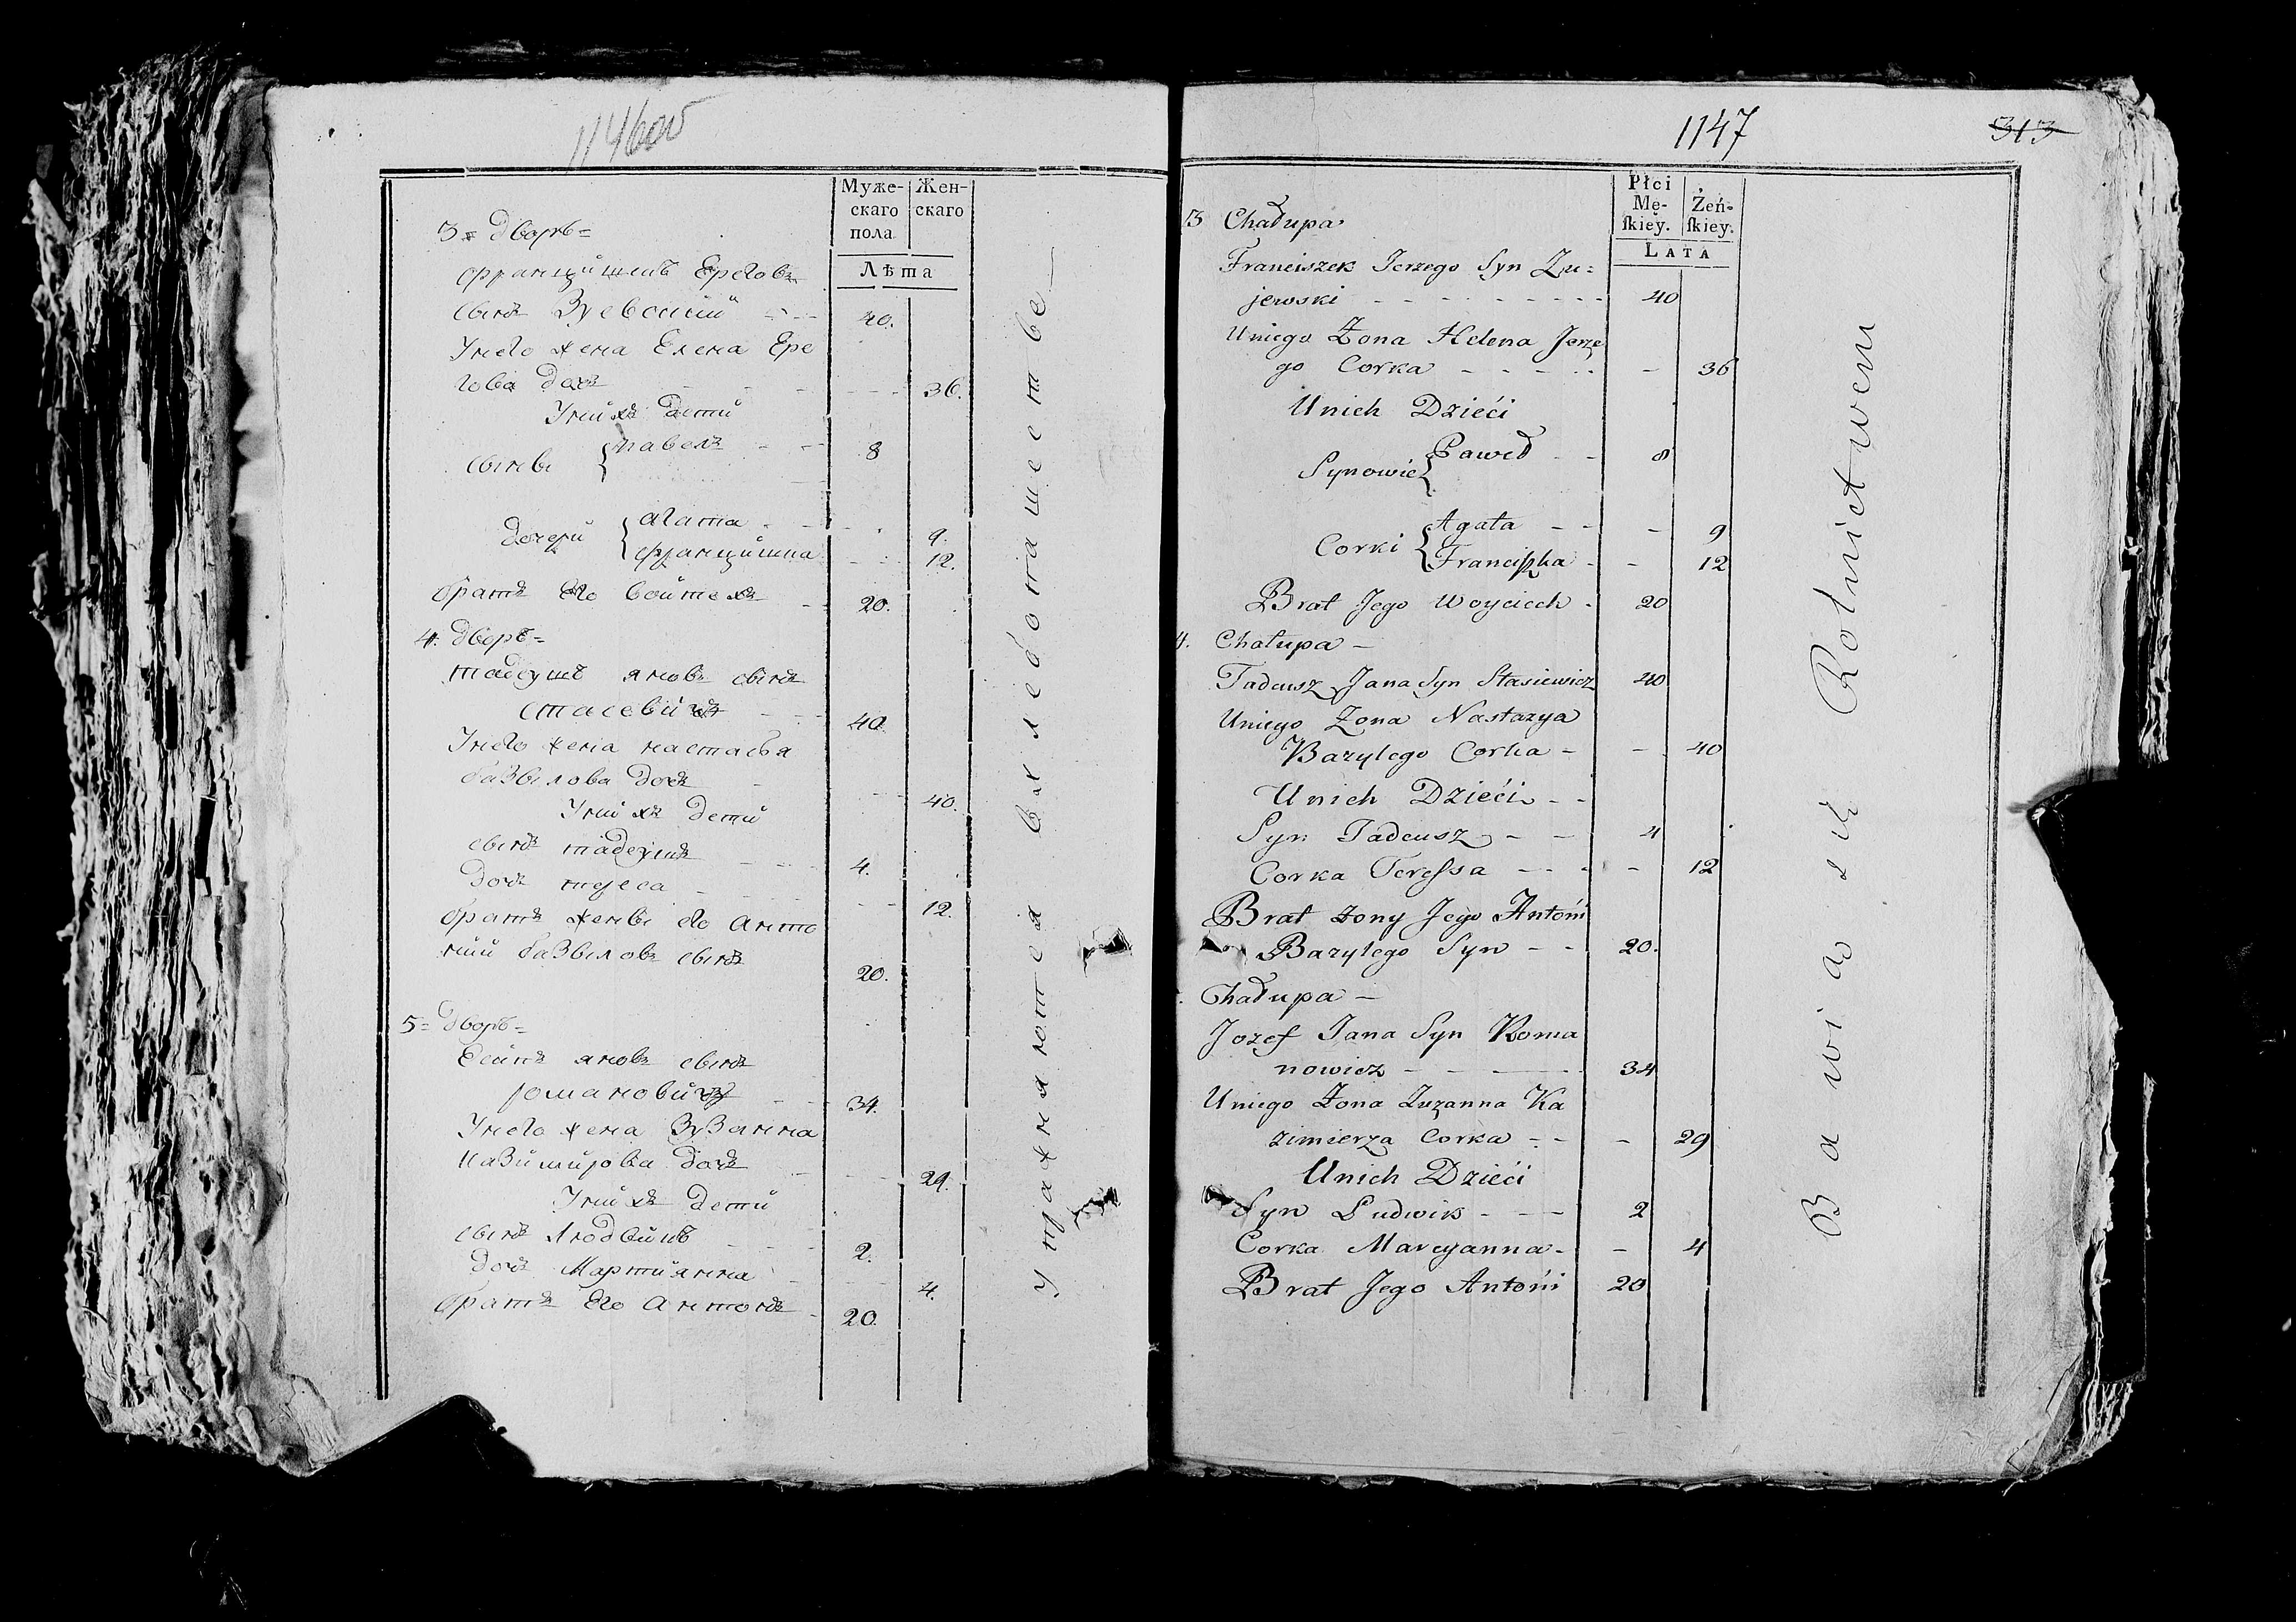 1146об
Муже-
скаго
пола.
Жен-
скаго
Лѣта
3= Дворъ=
Францишекъ Ерегов
сынъ Зуевский - - - 40.
У него жена Елена Ере
гова дочь - - - 36.
У них дети
сынвы { Павелъ - - 8
Дочери { Агата - - 9.
Францишка - - 12.
братъ его Войтехъ - - 20.
4. Дворъ=
Тадеушъ Яновъ сынъ
Стасевичъ - - 40.
У него жена Настасья
базылова дочь - - - 40.
У них дети
сынъ Тадеушъ - - - 4.
Дочь Тереса - - - 12.
братъ жены его Анто
ний базыловъ сынъ 20.
5= Дворъ=
Есипъ Яновъ сынъ
Романовичъ - - 34.
У него жена Зузанна
Казимирова дочь - - - 29.
У них дети
сынъ Людвикъ - - - 2.
Дочь Мартианна - - - 4.
братъ Его Антонъ - 20.
Упражняются въ хлебопашестве
1147
313
Płci
Mę-
ſkiéy.
Żeń-
ſkiey.
LATA
3 Chałupa
Franciszek Jerzego Syn Zu=
jewski - - - - - - - - - 40
Uniego Żona Helena Jerze
go Corka - - - - - - 36
Unich Dzieći
Synowie { Paweł - - 8
Corki { Agata - - - 9
Franciſzka - - 12
Brat Jego Woyciech - 20
4. Chałupa -
Tadeusz Jana Syn Stasiewicz 40
Uniego Żona Nastazya
Bazylego Corka - - 40
Unich Dzieći - -
Syn Tadeusz - - 4
Corka Tereſsa - - - - 12
Brat żony Jego Antońi
Bazylego Syn - - 20.
Chałupa -
Jozef Jana Syn Roma
nowicz - - - - 34
Uniego Żona Zuzanna Ka
zimierza Corka - - - 29
Unich Dzieći
Syn Ludwik - - - 2
Corka Marcyanna - - 4
Brat Jego Antońi 20
Bawią się Rolnictwem